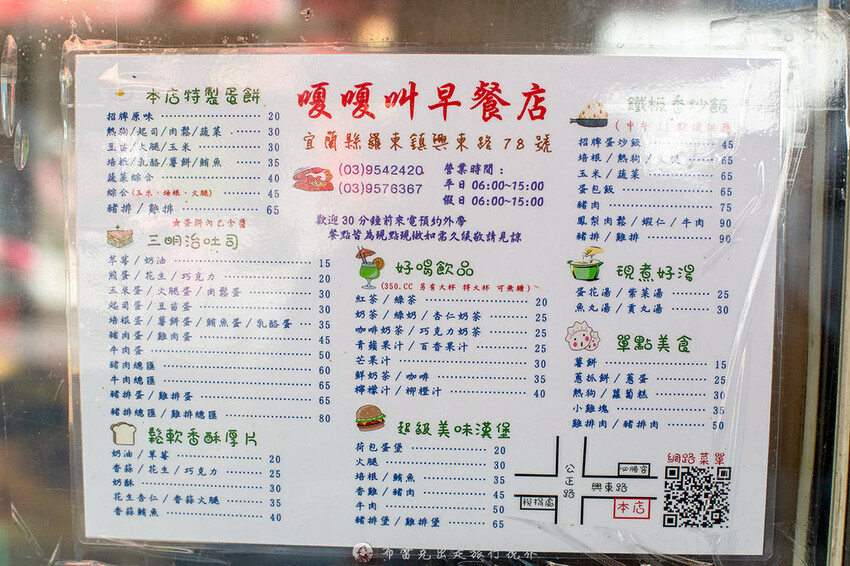 本店特製蛋餅
招牌原味 20
熱狗/起司/肉鬆/蔬菜 30
豆苗/火腿/玉米 30
培根/乳酪/薯餅/鮪魚 35
蔬菜綜合 40
綜合(玉米、培根、火腿) 45
豬排/雞排 65
★蛋餅內已含醬
三明治吐司
草莓/奶油 15
煎蛋/花生/巧克力 20
玉米蛋/火腿蛋/肉鬆蛋 30
起司蛋/豆苗蛋 30
培根蛋/薯餅蛋/鮪魚蛋/乳酪蛋 35
豬肉蛋/雞肉蛋 45
牛肉蛋 50
豬肉總匯 60
牛肉總匯 65
豬排蛋/雞排蛋 65
豬排總匯/雞排總匯 80
鬆軟香酥厚片
奶油/草莓 20
香蒜/花生/巧克力 25
奶酥 30
花生杏仁/香蒜火腿 35
香蒜鮪魚 40
嗄嗄叫早餐店
宜蘭縣羅東鎮興東路78號
(03)9542420
(03)9576367
營業時間:
平日 06:00~15:00
假日 06:00~15:00
歡迎30分鐘前來電預約外帶
餐點皆為現點現做如需久候敬請見諒
好喝飲品
(350.CC 另有大杯 特大杯 可無糖)
紅茶/綠茶 20
奶茶/綠奶/杏仁奶茶 25
咖啡奶茶/巧克力奶茶 25
青蘋果汁/百香果汁 25
芒果汁 30
鮮奶茶/咖啡 35
檸檬汁/柳橙汁 40
超級美味漢堡
荷包蛋堡 20
火腿 30
培根/鮪魚 35
香雞/豬肉 45
牛肉 50
豬排堡/雞排堡 65
鐵板香炒飯
招牌蛋炒飯 45
培根/熱狗/火腿 65
玉米/蔬菜 65
蛋包飯 65
豬肉 75
鳳梨肉鬆/蝦仁/牛肉 90
豬排/雞排 90
現煮好湯
蛋花湯/紫菜湯 25
魚丸湯/貢丸湯 30
單點美食
薯餅 15
蔥抓餅/蔥蛋 25
熱狗/蘿蔔糕 30
小雞塊 35
雞排肉/豬排肉 50
網路菜單
公正路
必勝客
興東路
稅捐處
本店